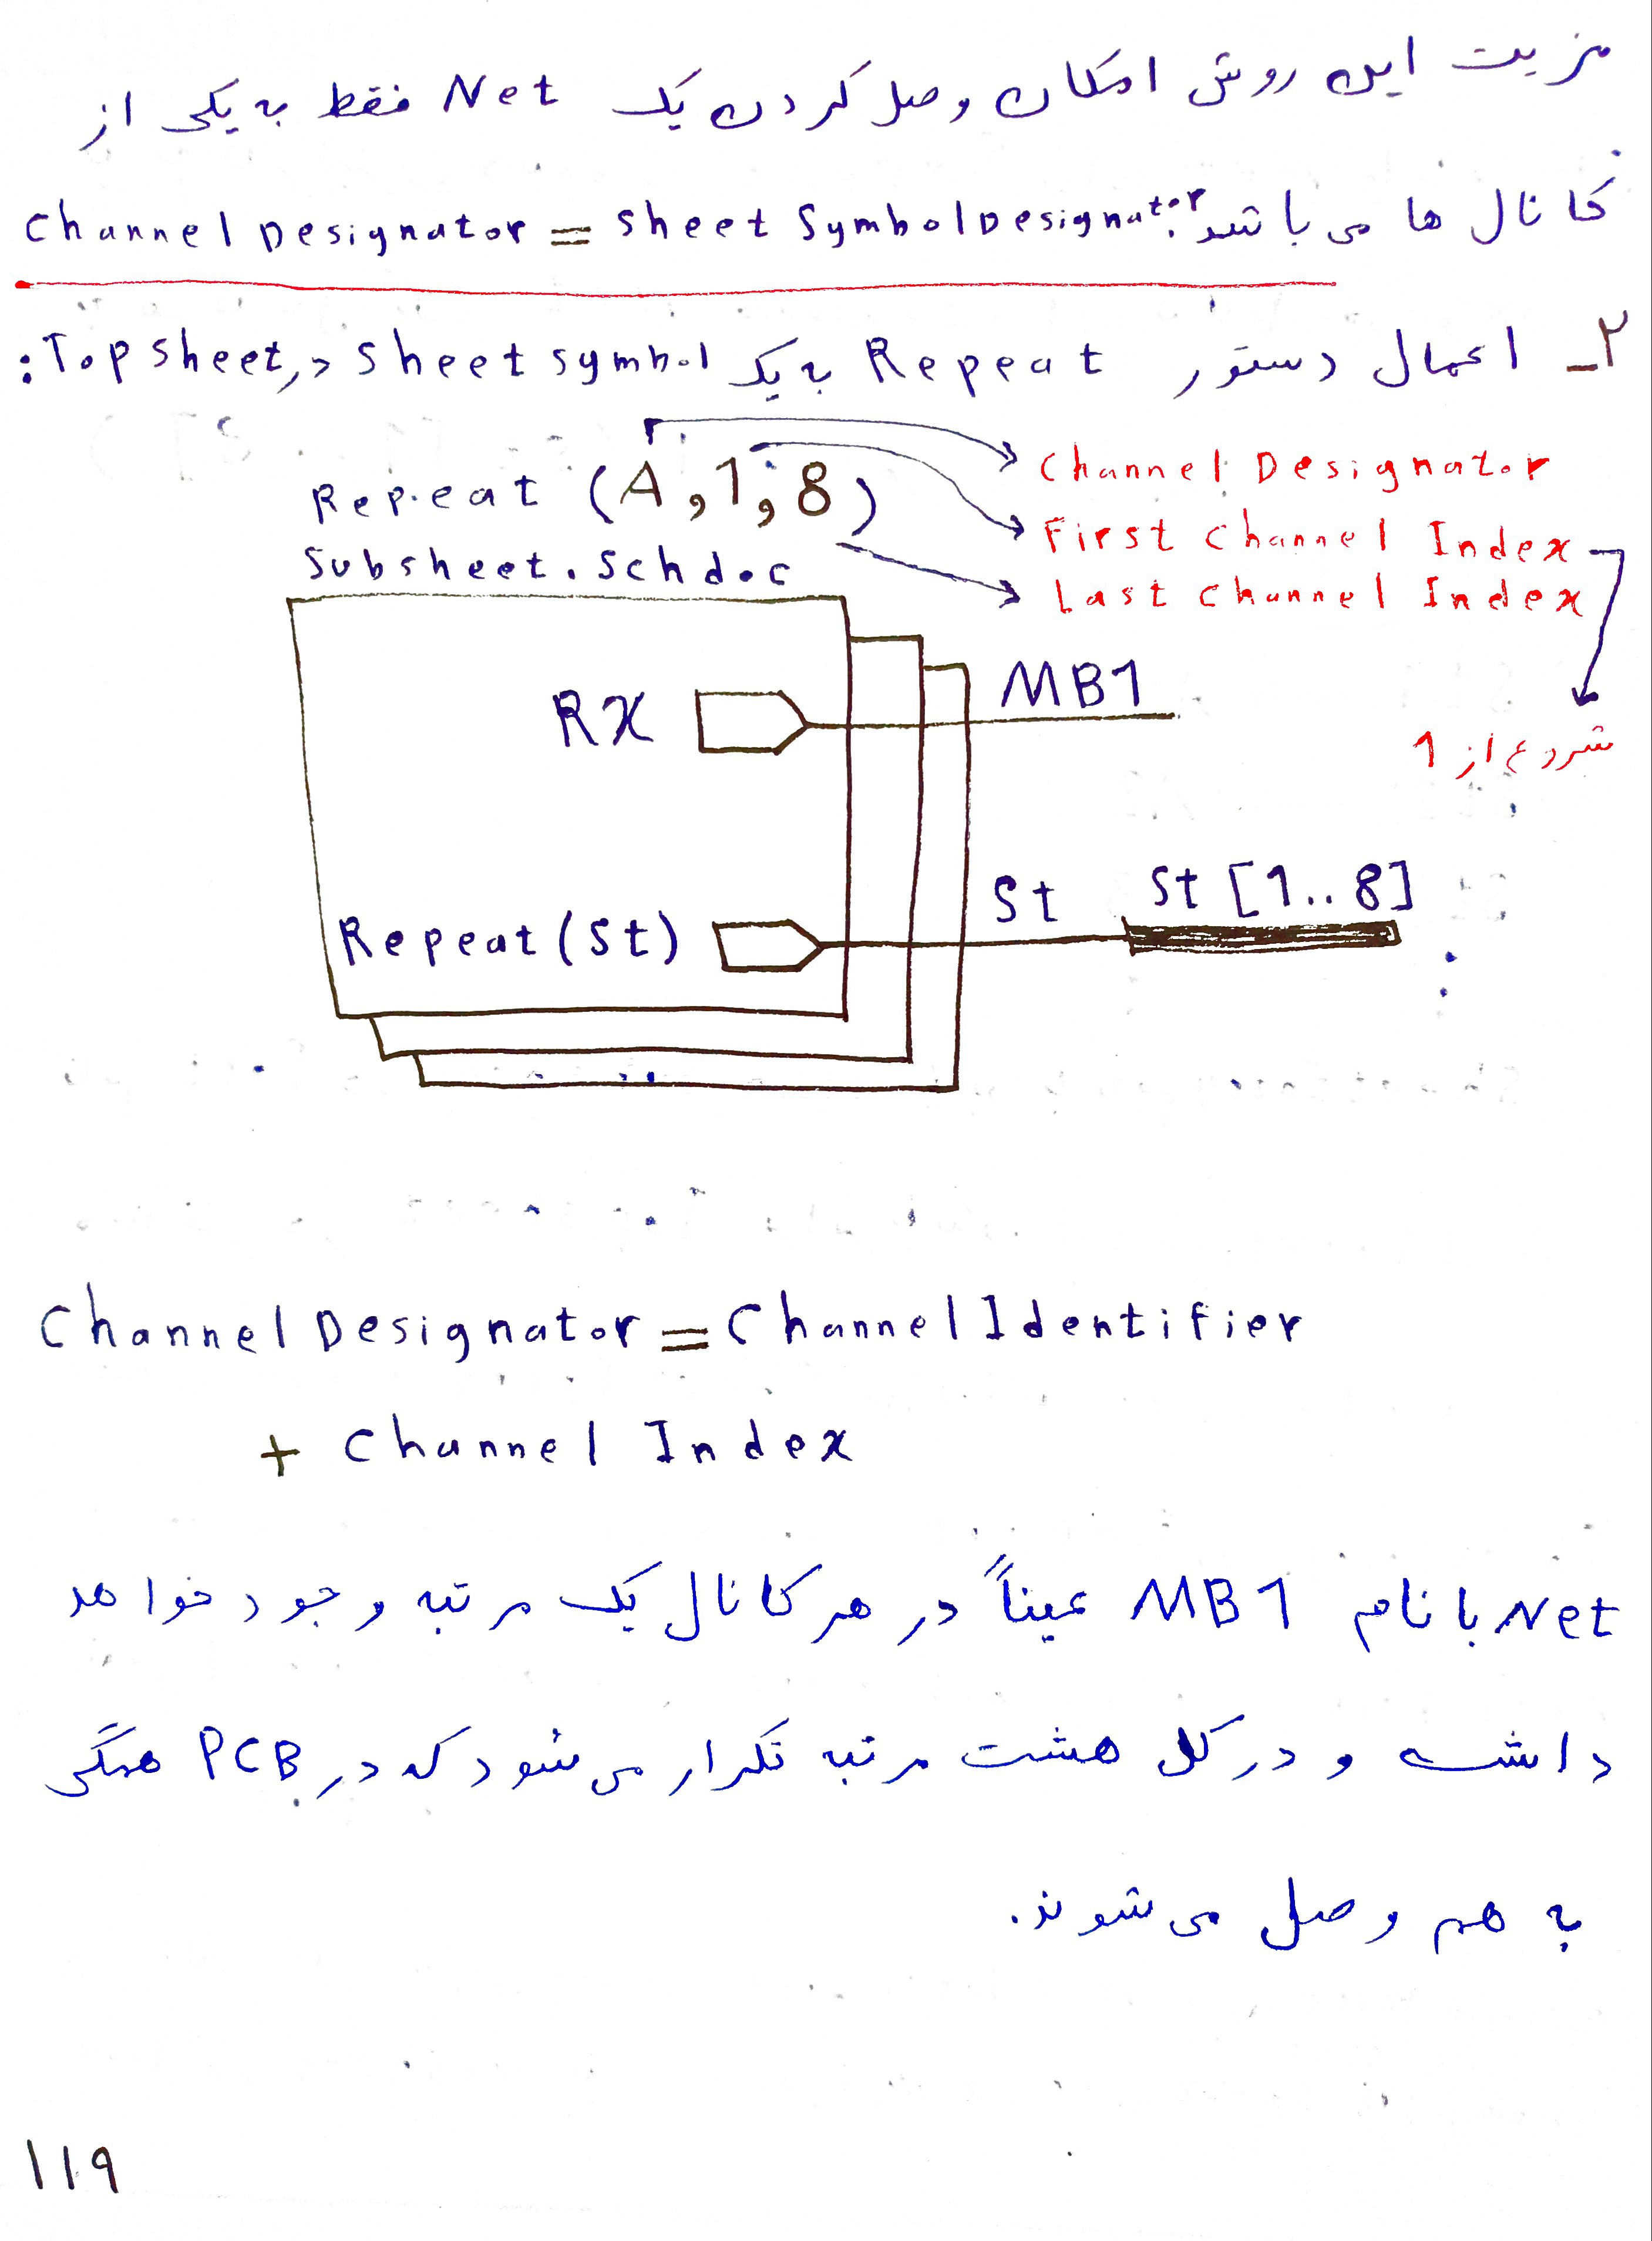 مزیت این روش امکان وصل کردن یک Net فقط به یکی از
کانال ها می باشد. Channel Designator = Sheet Symbol Designator
۲_ اعمال دستور Repeat به یک Sheet symbol در Top sheet:
Repeat (A,1,8)
Subsheet.Schdoc
Channel Designator
First Channel Index
Last Channel Index
شروع از 1
RX
MB1
Repeat (St)
St
St [1..8]
Channel Designator = Channel Identifier
+ Channel Index
Net با نام MB1 عیناً در هر کانال یک مرتبه وجود خواهد
داشت و در کل هشت مرتبه تکرار می شود که در PCB همگی
به هم وصل می شوند.
۱۱۹